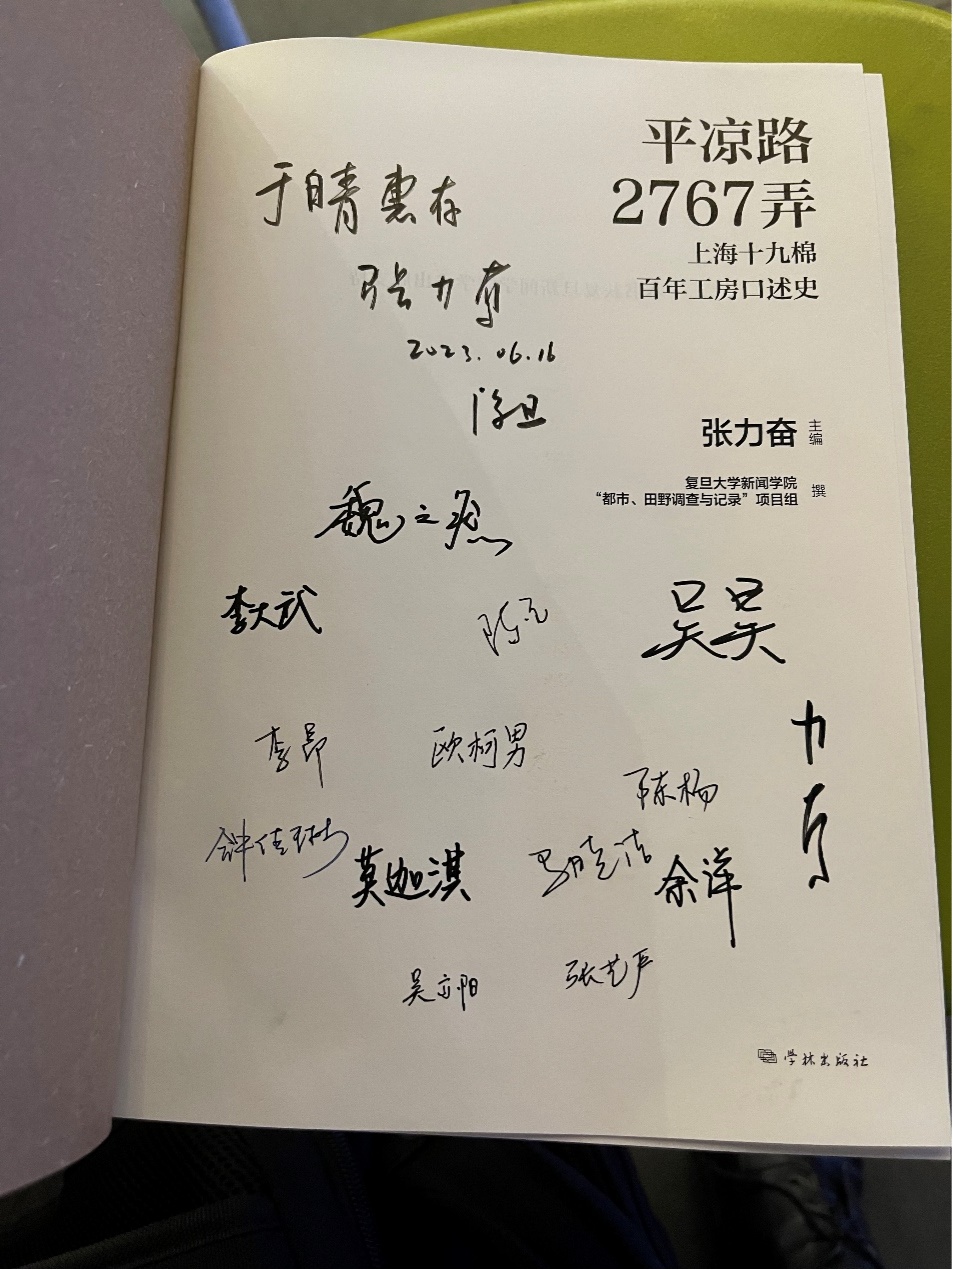 平凉路
2767弄
上海十九棉
百年工房口述史
张力奋 主编
复旦大学新闻学院
“都市、田野调查与记录”项目组 撰
于自青 惠存
张力奋
2023.06.16
李大武
吴昊
李昂
欧柯男
陈杨
钟佳琳
莫迦淇
余洋
吴亦阳
张艺严
学林出版社